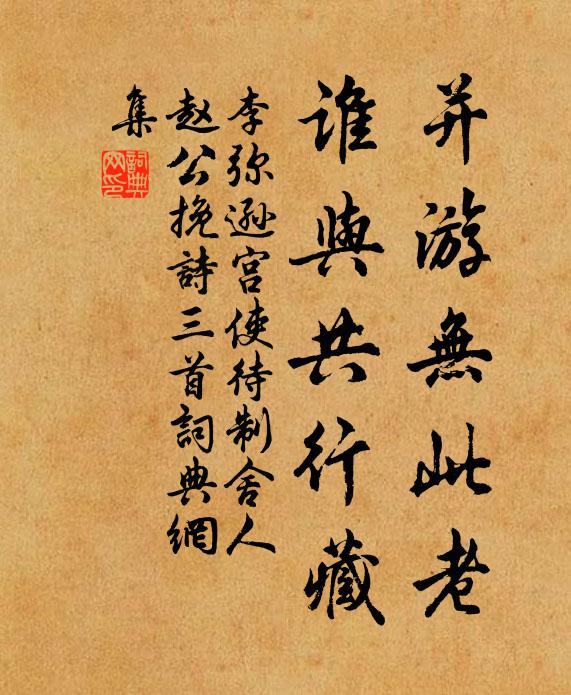 并游無此老
誰與共行藏
李弥遜宫使待制舍人
赵公挽詩三首詞典網
集
詞典
网印